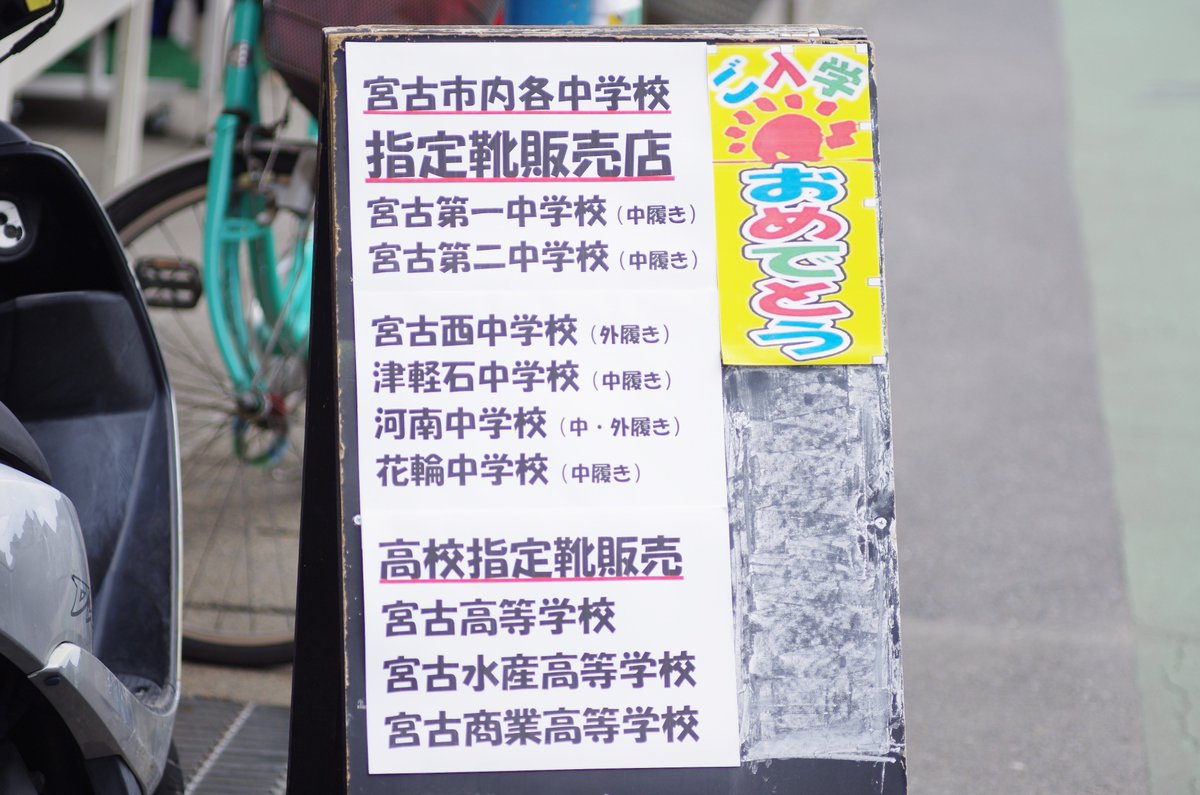 宮古市内各中学校
指定靴販売店
宮古第一中学校（中履き）
宮古第二中学校（中履き）
宮古西中学校（外履き）
津軽石中学校（中履き）
河南中学校（中・外履き）
花輪中学校（中履き）
高校指定靴販売
宮古高等学校
宮古水産高等学校
宮古商業高等学校
ご入学
おめでとう